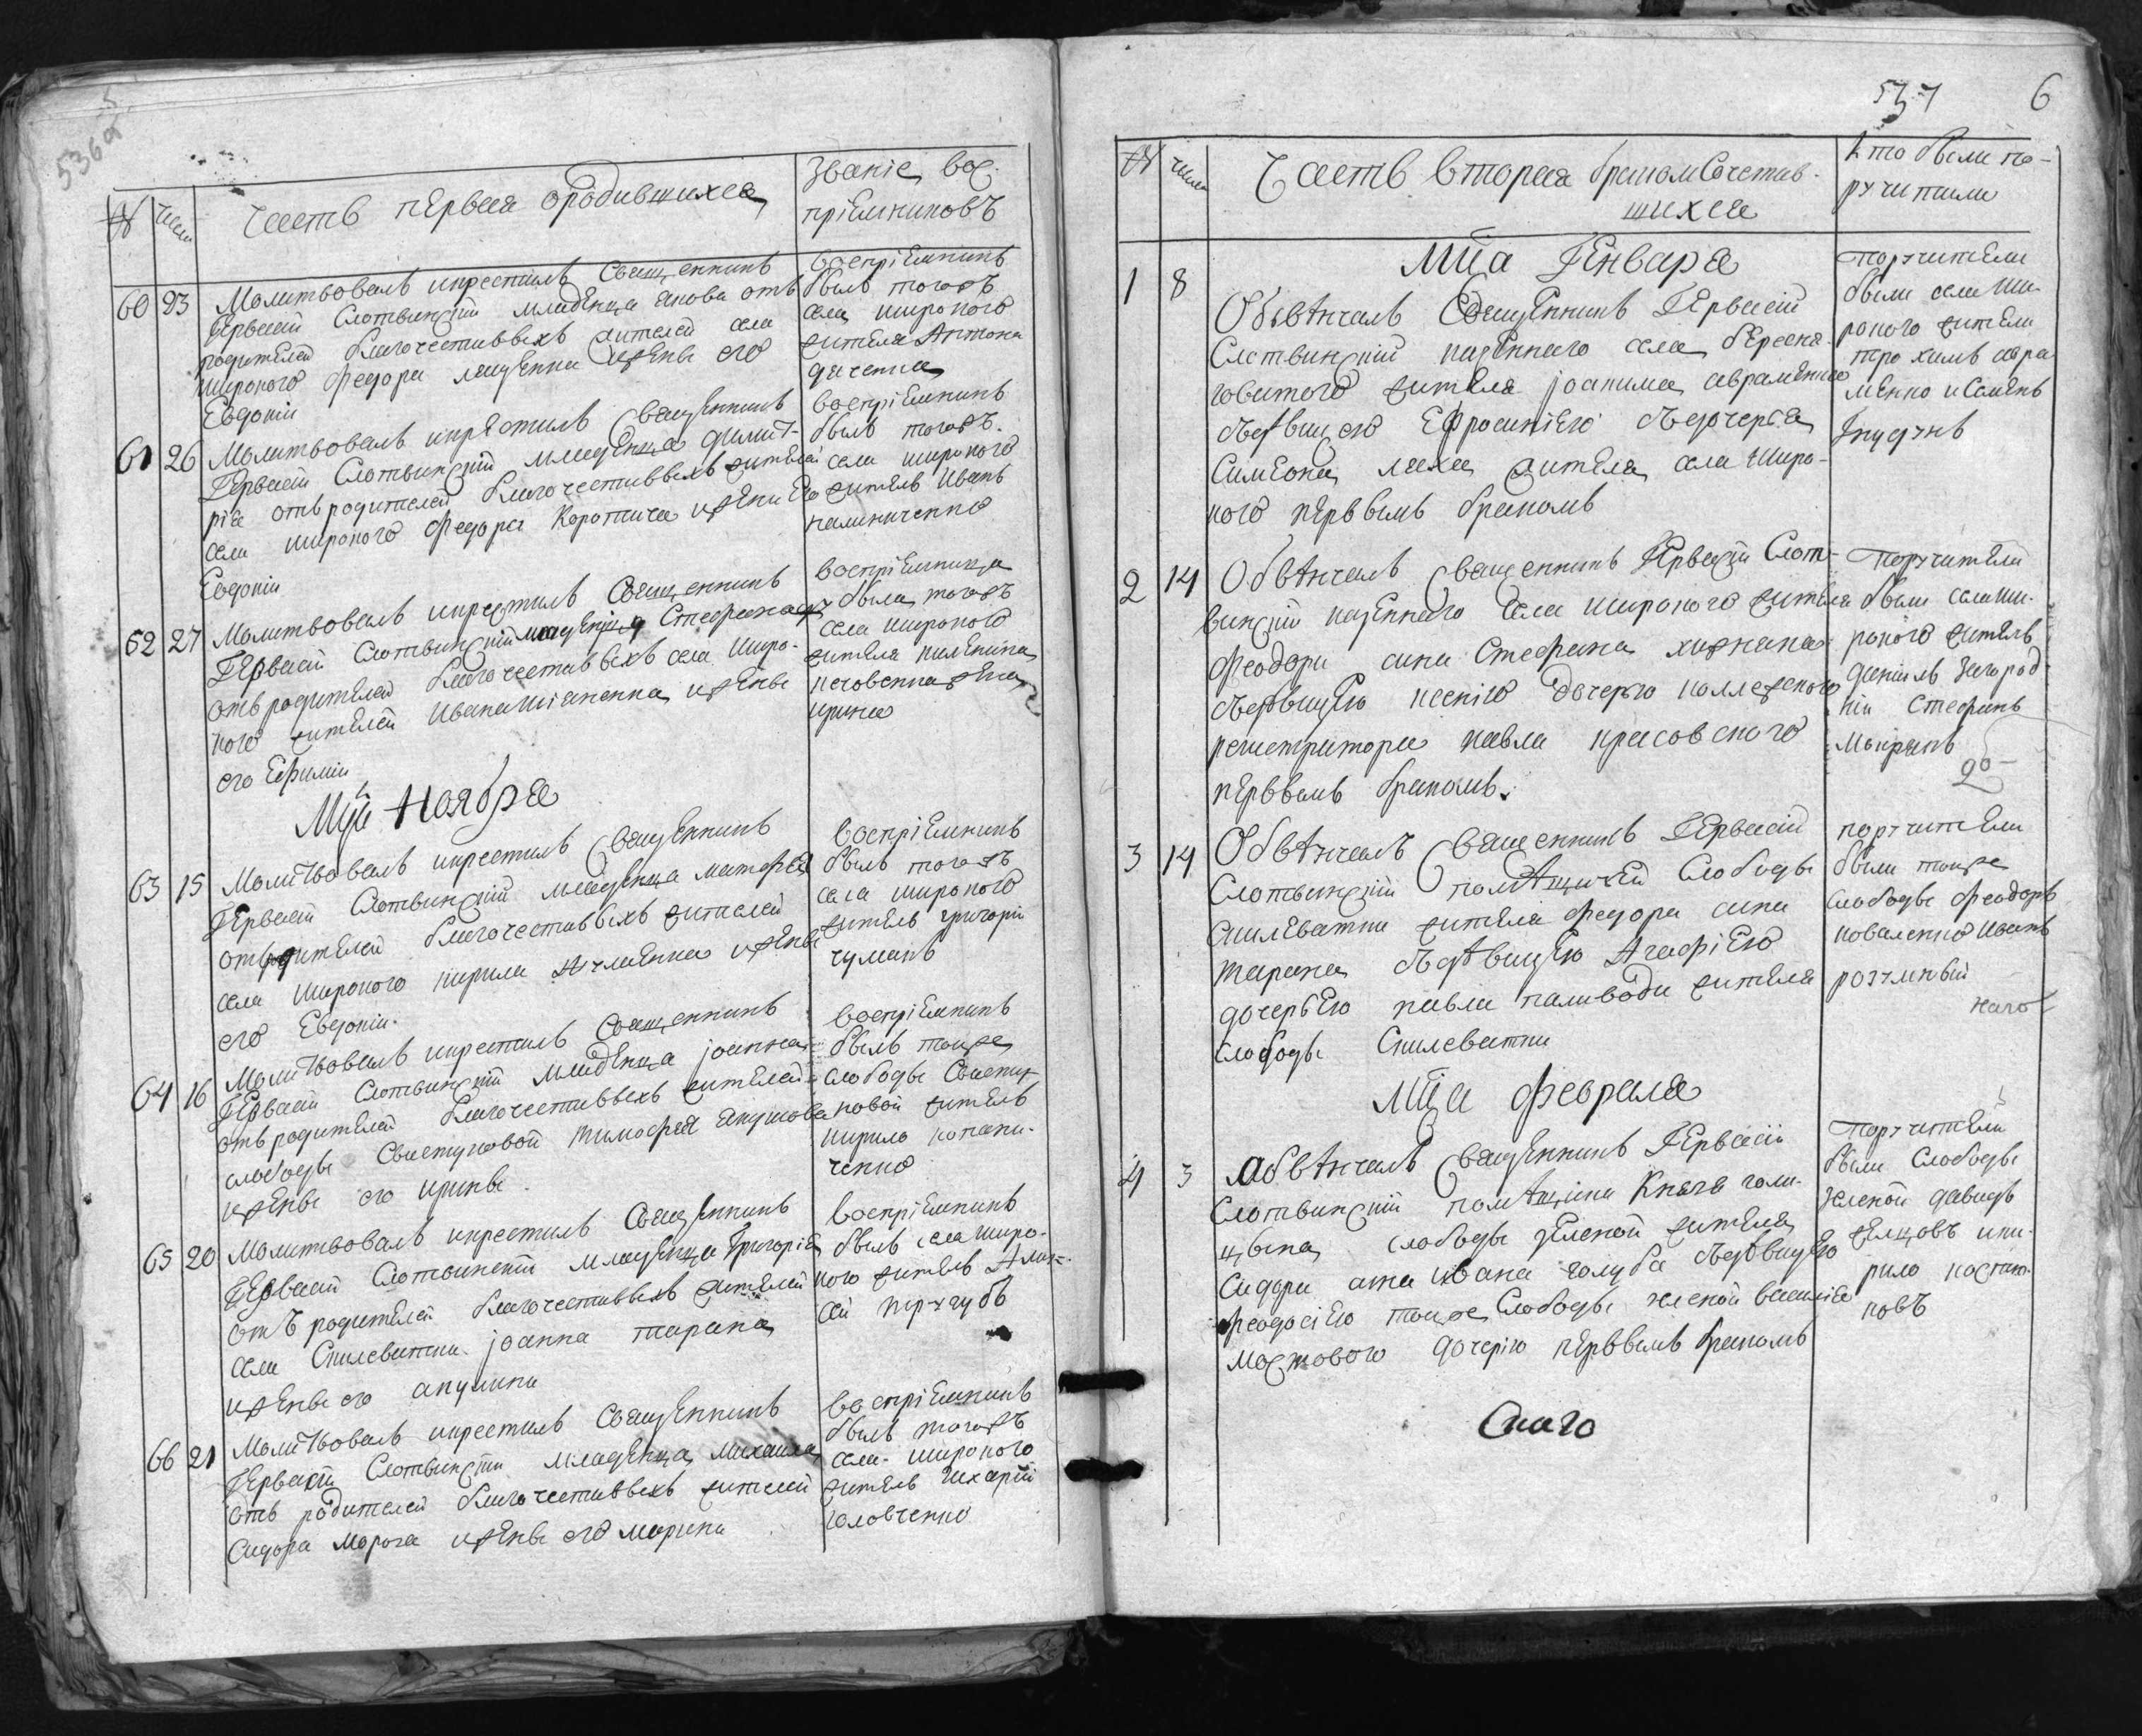 536а
№ Числа Часть первая ородившихся
Званіе вос-
пріемниковъ
60 23 Молитвовалъ икрестилъ Священникъ
Гервасій Слотвинскій младенца якова отъ
родителей благочестивыхъ жителей села
широкого федора ляшенка ижены его
Евдокіи
воспріемникъ
былъ тогожъ
села широкого
жителя Антона
дяченка
61 26 Молитвовалъ икрестилъ Священникъ
Гервасій Слотвинскій младенца димит-
рія отъ родителей благочестивыхъ жителей
села широкого федора Коротича ижени Его
Евдокіи
воспріемникъ
былъ тогожъ
села широкого
житель Иванъ
калиниченко
62 27 Молитвовалъ икрестилъ Священникъ
Гервасій Слотвинскій младенца Стефана
отъ родителей благочестивыхъ села Широ-
кого жителей Ивана ижены
его Ефиміи
воспріемница
была тогожъ
села широкого
жителя
жена
ирина
Мца Ноября
63 15 Молитвовалъ икрестилъ Священникъ
Гервасій Слотвинскій младенца матфея
отъ родителей благочестивыхъ жителей
села широкого кирила ижены
его Евдокіи.
воспріемникъ
былъ тогожъ
села широкого
житель григорій
чумакъ
64 16 Молитвовалъ икрестилъ Священникъ
Гервасій Слотвинскій младенца іоанна
отъ родителей благочестивыхъ жителей
слободы Свистуновой тимофея якушова
ижены его ирины.
воспріемникъ
былъ тояже
слободы Свисту-
новой житель
кирило
ченко
65 20 Молитвовалъ икрестилъ Священникъ
Гервасій Слотвинскій младенца Григорія
отъ родителей благочестивыхъ жителей
села Спилеватки іоанна тарана
ижены его акулини
воспріемникъ
былъ села широ-
кого житель Алек-
сей
66 21 Молитвовалъ икрестилъ Священникъ
Гервасій Слотвинскій младенца Михаила
отъ родителей благочестивыхъ жителей
Сидора Мороза ижены его марины
воспріемникъ
былъ тогожъ
села широкого
житель захарій
головченко
537 6
№ Числа Часть вторая бракомСочетав-
шихся
Кто были по-
ручители
Мца Генваря
1 8 Обвѣнчалъ Священникъ Гервасій
Слотвинскій казенного села береска-
говатого жителя іоакима авраменко
съдѣвицею Ефросиніею съдочерья
Симеона ляха жителя села Широ-
кого первымъ бракомъ
поручители
были села Ши-
рокого жители
трохимъ авра-
менко и Семенъ
2 14 Обвѣнчалъ Священникъ Гервасій Слот-
винскій казенного села широкого жителя
феодора сина Стефана
съдѣвицею ксенією дочерю коллежского
регистратора павла красовского
первымъ бракомъ.
поручители
были села ши-
рокого житель
даниилъ загород-
ній Стефанъ
Мокрякъ
3 14 Обвѣнчалъ Священникъ Гервасій
Слотвинскій помѣщичей Слободы
Спилеватки жителя федора сина
тарана съдѣвицею Агафіею
дочерьею павла паливоди жителя
слободы Спилеватки
поручители
были тояже
слободы феодоръ
коваленко Иванъ
розумный
Мца февраля
4 3 обвѣнчалъ Священникъ Гервасій
Слотвинскій помѣщика Князя голи-
цына слободы зеленой жителя
Сидора сина ивана голуба съдѣвицею
феодосією тояже Слободы зеленой василія
Мостового дочерію первымъ бракомъ
поручители
были Слободы
зеленой давидъ
ики-
рило костю-
ковъ